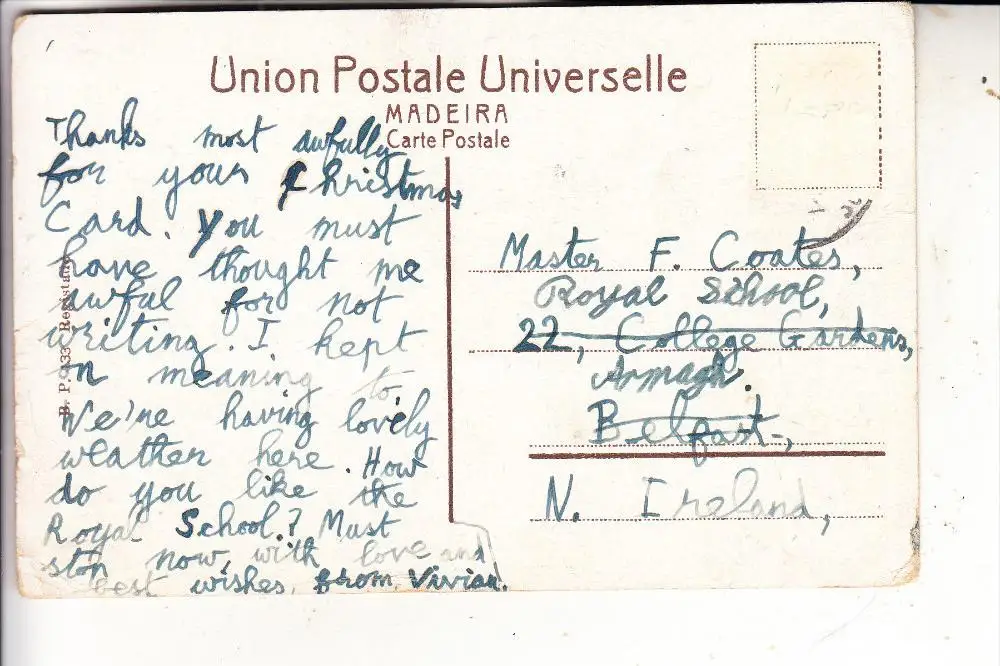 Union Postale Universelle
MADEIRA
Carte Postale
Thanks most awfully
for your Christmas
Card. You must
have thought me
awful for not
writing. I kept
on meaning to.
We're having lovely
weather here. How
do you like the
Royal School? Must
stop now, with love and
best wishes, from Vivian.
Master F. Coates,
Royal School,
22, College Gardens,
Armagh.
Belfast,
N. Ireland,
B. P. 33